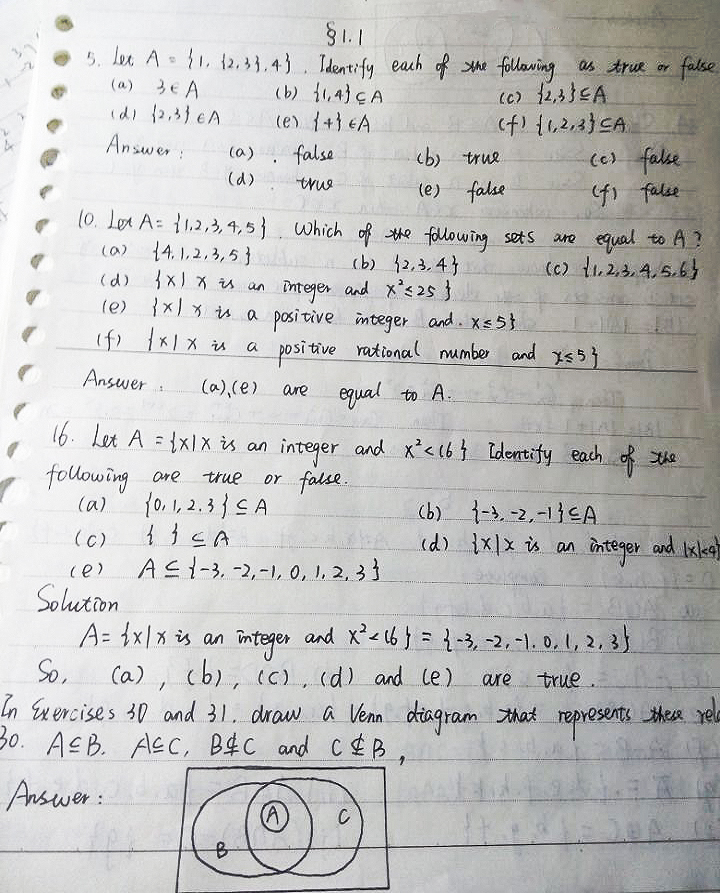 §1.1
5. Let A = {1, {2,3}, 4}. Identify each of the following as true or false
(a) 3 ∈ A (b) {1,4} ⊆ A (c) {2,3} ⊆ A
(d) {2,3} ∈ A (e) {4} ∈ A (f) {1,2,3} ⊆ A
Answer: (a). false (b) true (c) false
(d). true (e) false (f) false
10. Let A = {1,2,3,4,5} Which of the following sets are equal to A?
(a) {4,1,2,3,5} (b) {2,3,4} (c) {1,2,3,4,5,6}
(d) {x| x is an integer and x²≤25}
(e) {x| x is a positive integer and x≤5}
(f) {x| x is a positive rational number and x≤5}
Answer: (a),(e) are equal to A.
16. Let A = {x|x is an integer and x²<16} Identify each of the
following are true or false.
(a) {0,1,2,3} ⊆ A (b) {-3,-2,-1} ⊆ A
(c) { } ⊆ A (d) {x|x is an integer and |x|<4}
(e) A ⊆ {-3,-2,-1,0,1,2,3}
Solution
A = {x|x is an integer and x²<16} = {-3,-2,-1,0,1,2,3}
So, (a), (b), (c), (d) and (e) are true.
In Exercises 30 and 31. draw a Venn diagram that represents these rela
30. A⊆B. A⊆C, B⊈C and C⊈B,
Answer:
A C
B